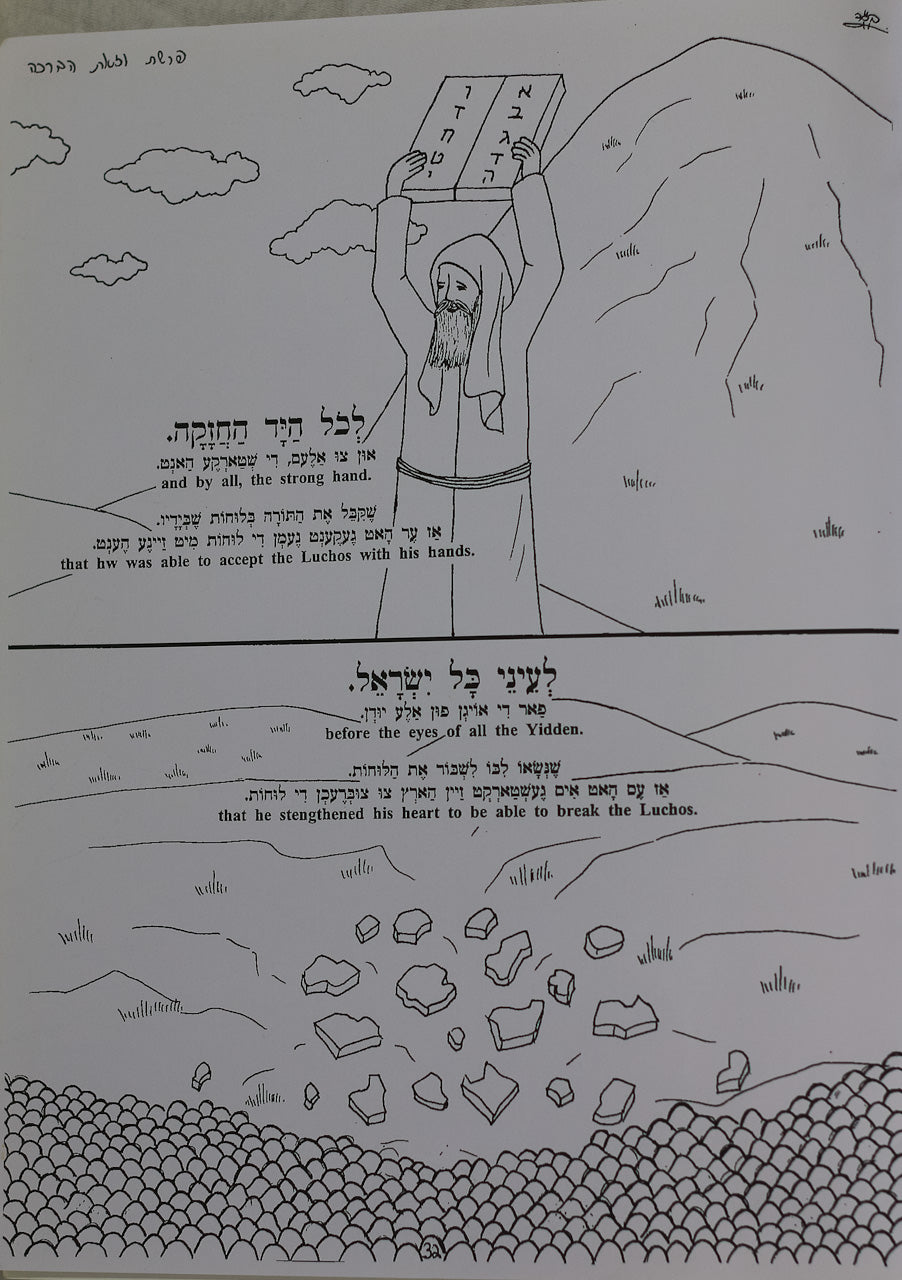 פרשת וזאת הברכה
א ו
ב ז
ג ח
ד ט
ה י
לְכֹל הַיָּד הַחֲזָקָה.
אוּן צוּ אַלֶעם, דִי שְׁטַארְקֶע הַאנְט.
and by all, the strong hand.
שֶׁקִּבֵּל אֶת הַתּוֹרָה בְּלוּחוֹת שֶׁבְּיָדָיו.
אַז עֶר הָאט גֶעקֶענְט נֶעמֶן דִי לוּחוֹת מִיט זַיינֶע הֶענְט.
that hw was able to accept the Luchos with his hands.
לְעֵינֵי כָּל יִשְׂרָאֵל.
פַאר דִי אוֹיגְן פוּן אַלֶע יוּדְן.
before the eyes of all the Yidden.
שֶׁנְּשָׂאוֹ לִבּוֹ לִשְׁבּוֹר אֶת הַלּוּחוֹת.
אַז עֶס הָאט אִים גֶעשְׁטַארְקְט זַיין הַארְץ צוּ צוּבְּרֶעכְן דִי לוּחוֹת.
that he stengthened his heart to be able to break the Luchos.
32